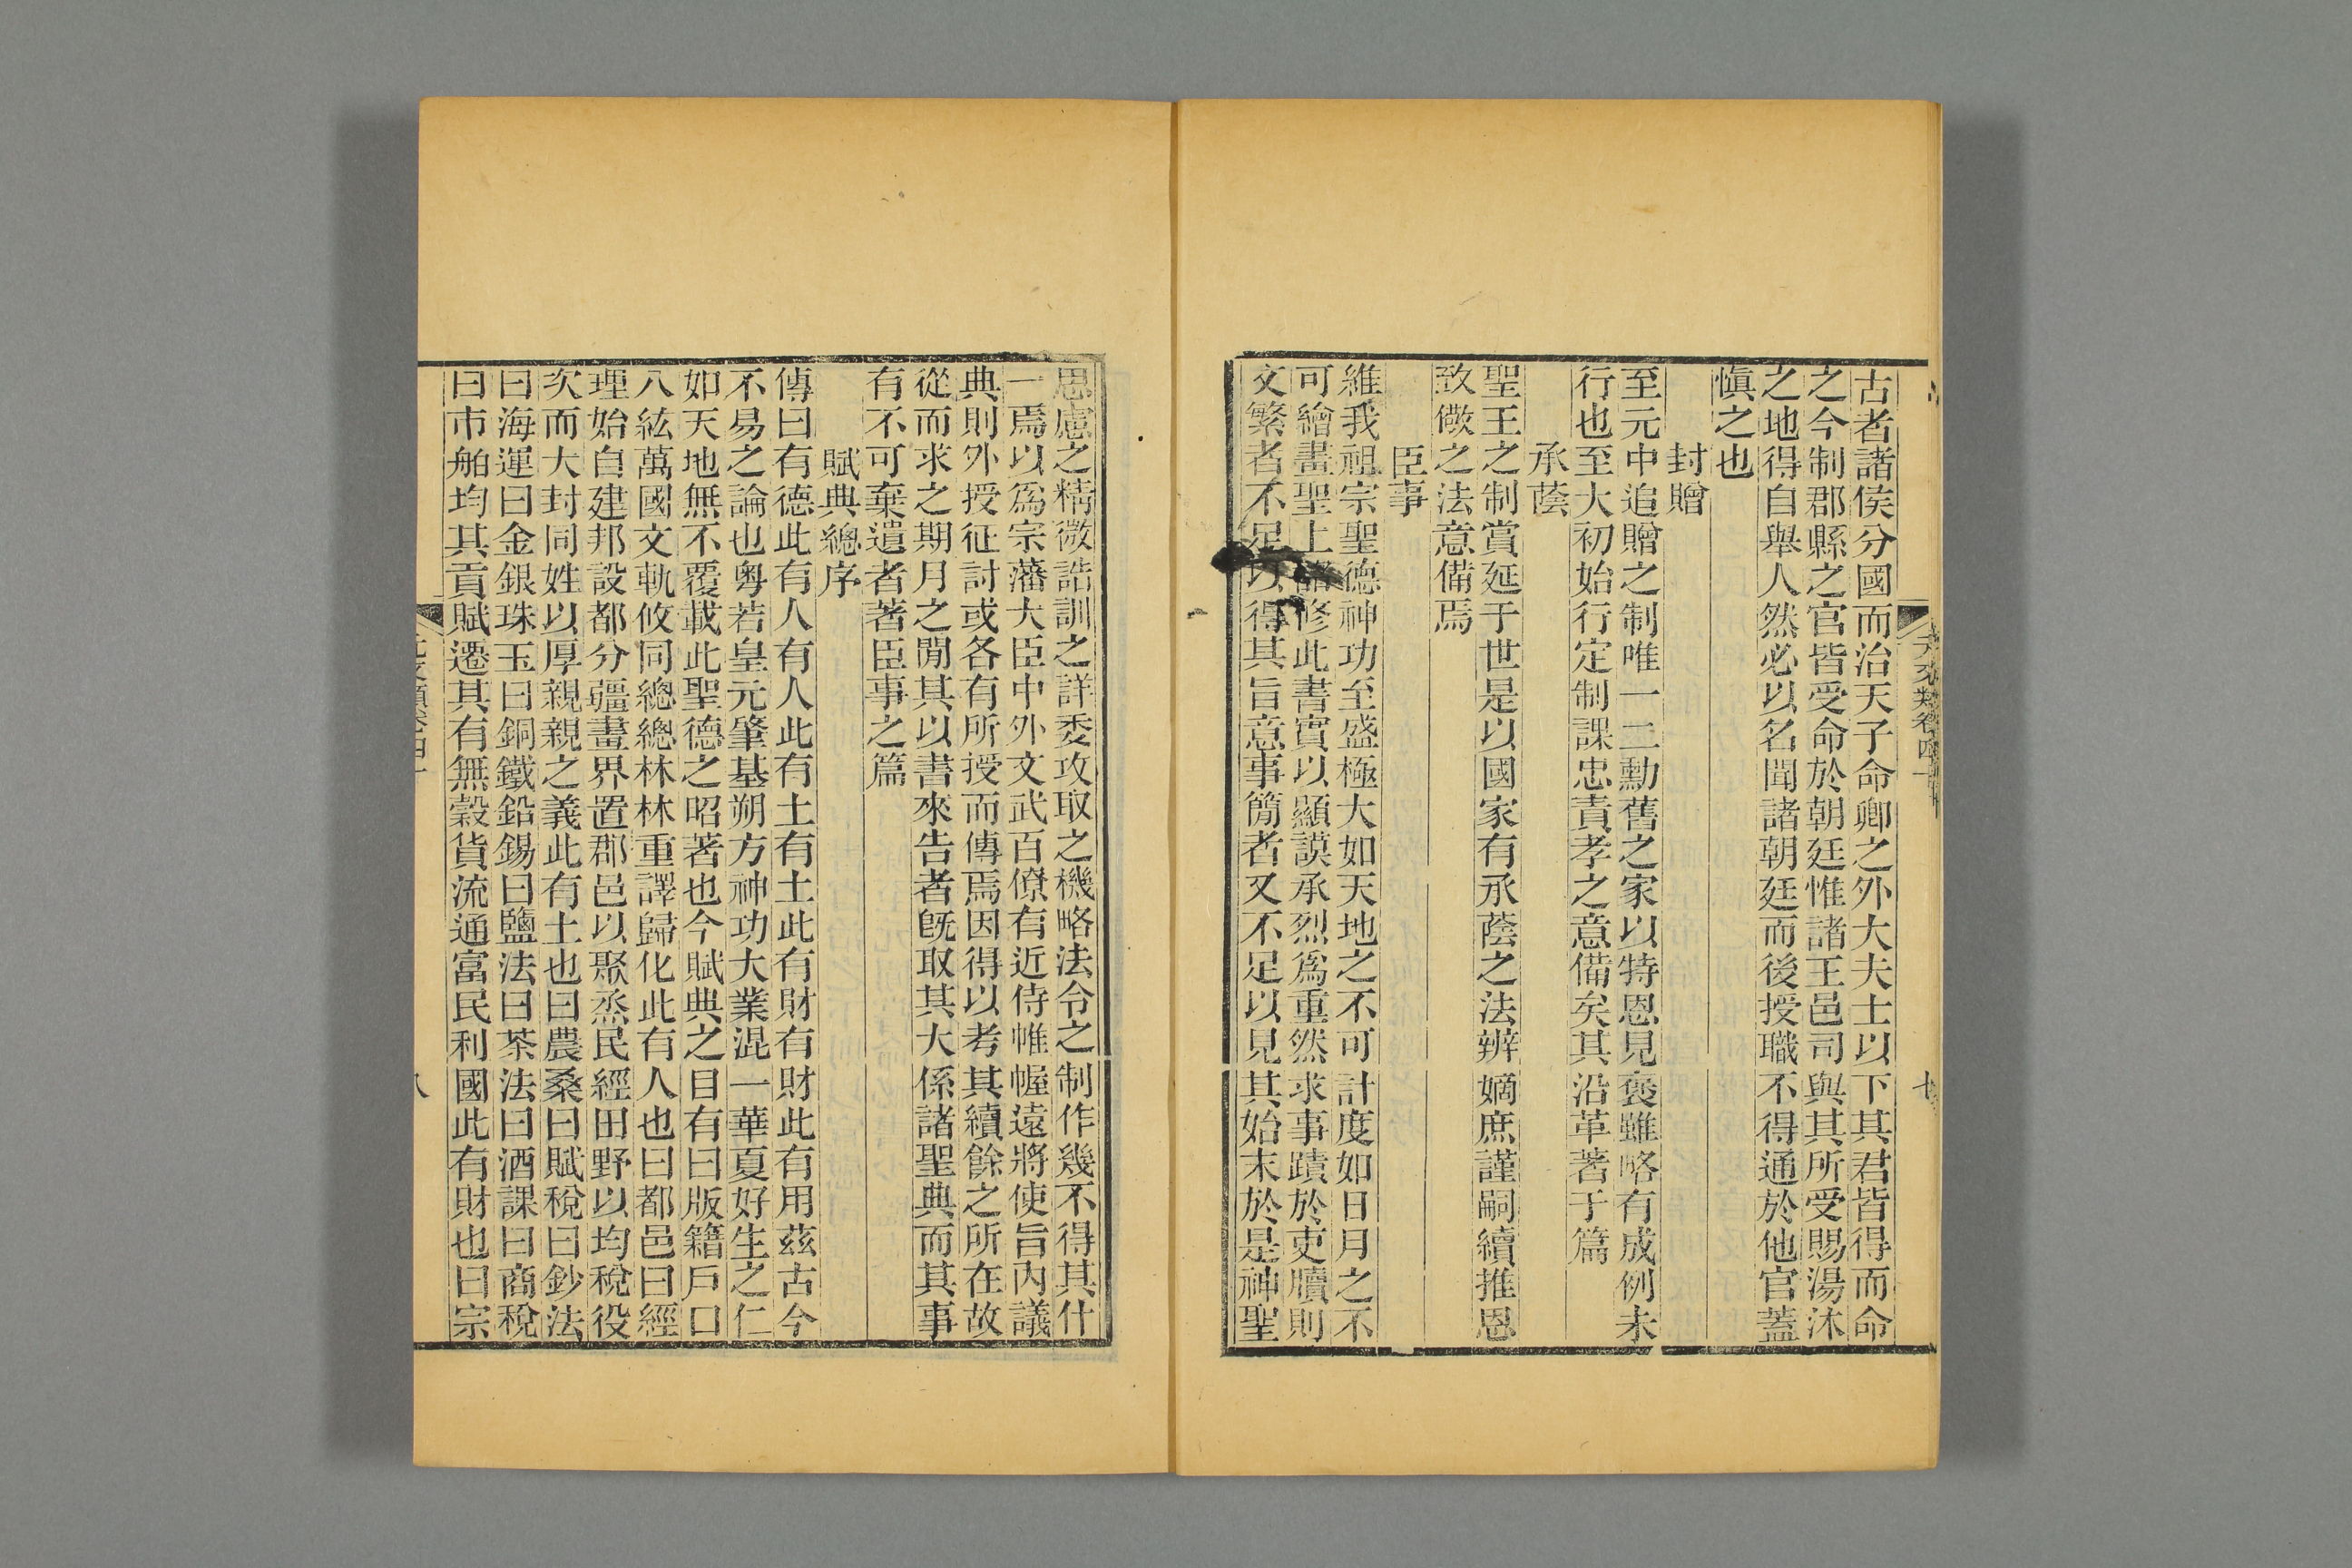 古者諸侯分國而治天子命卿之外大夫士以下其君皆得而命
之今制郡縣之官皆受命於朝廷惟諸王邑司與其所受賜湯沐
之地得自舉人然必以名聞諸朝廷而後授職不得通於他官蓋
愼之也
封贈
至元中追贈之制唯一二勳舊之家以特恩見褒雖略有成例未
行也至大初始行定制課忠責孝之意備矣其沿革著于篇
承蔭
聖王之制賞延于世是以國家有承蔭之法辨嫡庶謹嗣續推恩
致儆之法意備焉
臣事
維我祖宗聖德神功至盛極大如天地之不可計度如日月之不
可繪畫聖上諸修此書實以顯謨承烈爲重然求事蹟於吏牘則
文繁者不足以得其旨意事簡者又不足以見其始末於是神聖
思慮之精微誥訓之詳委攻取之機略法令之制作幾不得其什
一焉以爲宗藩大臣中外文武百僚有近侍帷幄遠將使旨內議
典則外授征討或各有所授而傳焉因得以考其續餘之所在故
從而求之期月之閒其以書來告者旣取其大係諸聖典而其事
有不可棄遺者著臣事之篇
賦典總序
傳曰有德此有人有人此有土有土此有財有財此有用茲古今
不易之論也粵若皇元肇基朔方神功大業混一華夏好生之仁
如天地無不覆載此聖德之昭著也今賦典之目有曰版籍戶口
八紘萬國文軌攸同總總林林重譯歸化此有人也曰都邑曰經
理始自建邦設都分疆畫界置郡邑以聚烝民經田野以均稅役
次而大封同姓以厚親親之義此有土也曰農桑曰賦稅曰鈔法
曰海運曰金銀珠玉曰銅鐵鉛錫曰鹽法曰茶法曰酒課曰商稅
曰市舶均其貢賦遷其有無穀貨流通富民利國此有財也曰宗